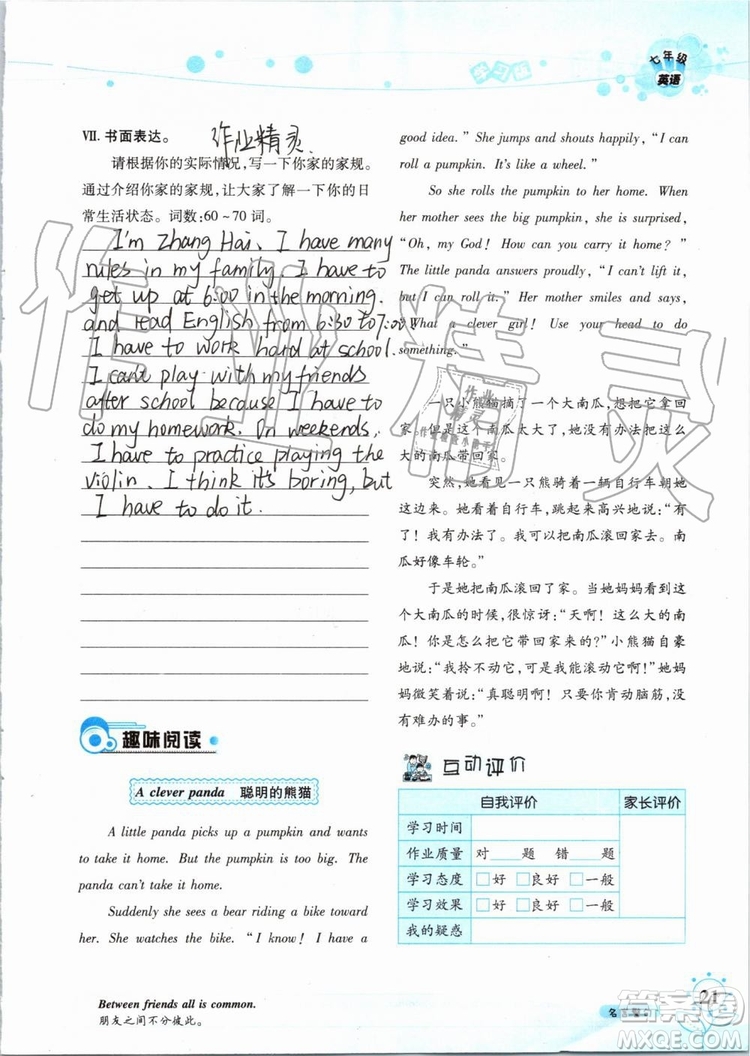 学习版
七年级
英语
VII. 书面表达。 作业精灵
请根据你的实际情况,写一下你家的家规。
通过介绍你家的家规,让大家了解一下你的日
常生活状态。词数:60~70词。
I'm Zhang Hai. I have many
rules in my family. I have to
get up at 6:00 in the morning.
and read English from 6:30 to 7:00.
I have to work hard at school.
I can't play with my friends
after school because I have to
do my homework. On weekends,
I have to practice playing the
violin. I think it's boring, but
I have to do it.
趣味阅读
A clever panda 聪明的熊猫
A little panda picks up a pumpkin and wants
to take it home. But the pumpkin is too big. The
panda can't take it home.
Suddenly she sees a bear riding a bike toward
her. She watches the bike. “I know! I have a
good idea.” She jumps and shouts happily, “I can
roll a pumpkin. It's like a wheel.”
So she rolls the pumpkin to her home. When
her mother sees the big pumpkin, she is surprised,
“Oh, my God! How can you carry it home?”
The little panda answers proudly, “I can't lift it,
but I can roll it.” Her mother smiles and says,
“What a clever girl! Use your head to do
something.”
一只小熊猫摘了一个大南瓜,想把它拿回
家。但是这个南瓜太大了,她没有办法把这么
大的南瓜带回家。
突然,她看见一只熊骑着一辆自行车朝她
这边来。她看着自行车,跳起来高兴地说:“有
了!我有办法了。我可以把南瓜滚回去。南
瓜好像车轮。”
于是她把南瓜滚回了家。当她妈妈看到这
个大南瓜的时候,很惊讶:“天啊!这么大的南
瓜!你是怎么把它带回家来的?”小熊猫自豪
地说:“我拎不动它,可是我能滚动它。”她妈
妈微笑着说:“真聪明啊!只要你肯动脑筋,没
有难办的事。”
互动评价
自我评价 家长评价
学习时间
作业质量 对 题 错 题
学习态度 □好 □良好 □一般
学习效果 □好 □良好 □一般
我的疑惑
Between friends all is common.
朋友之间不分彼此。
21
作业精灵
答案圈
MXQE.COM